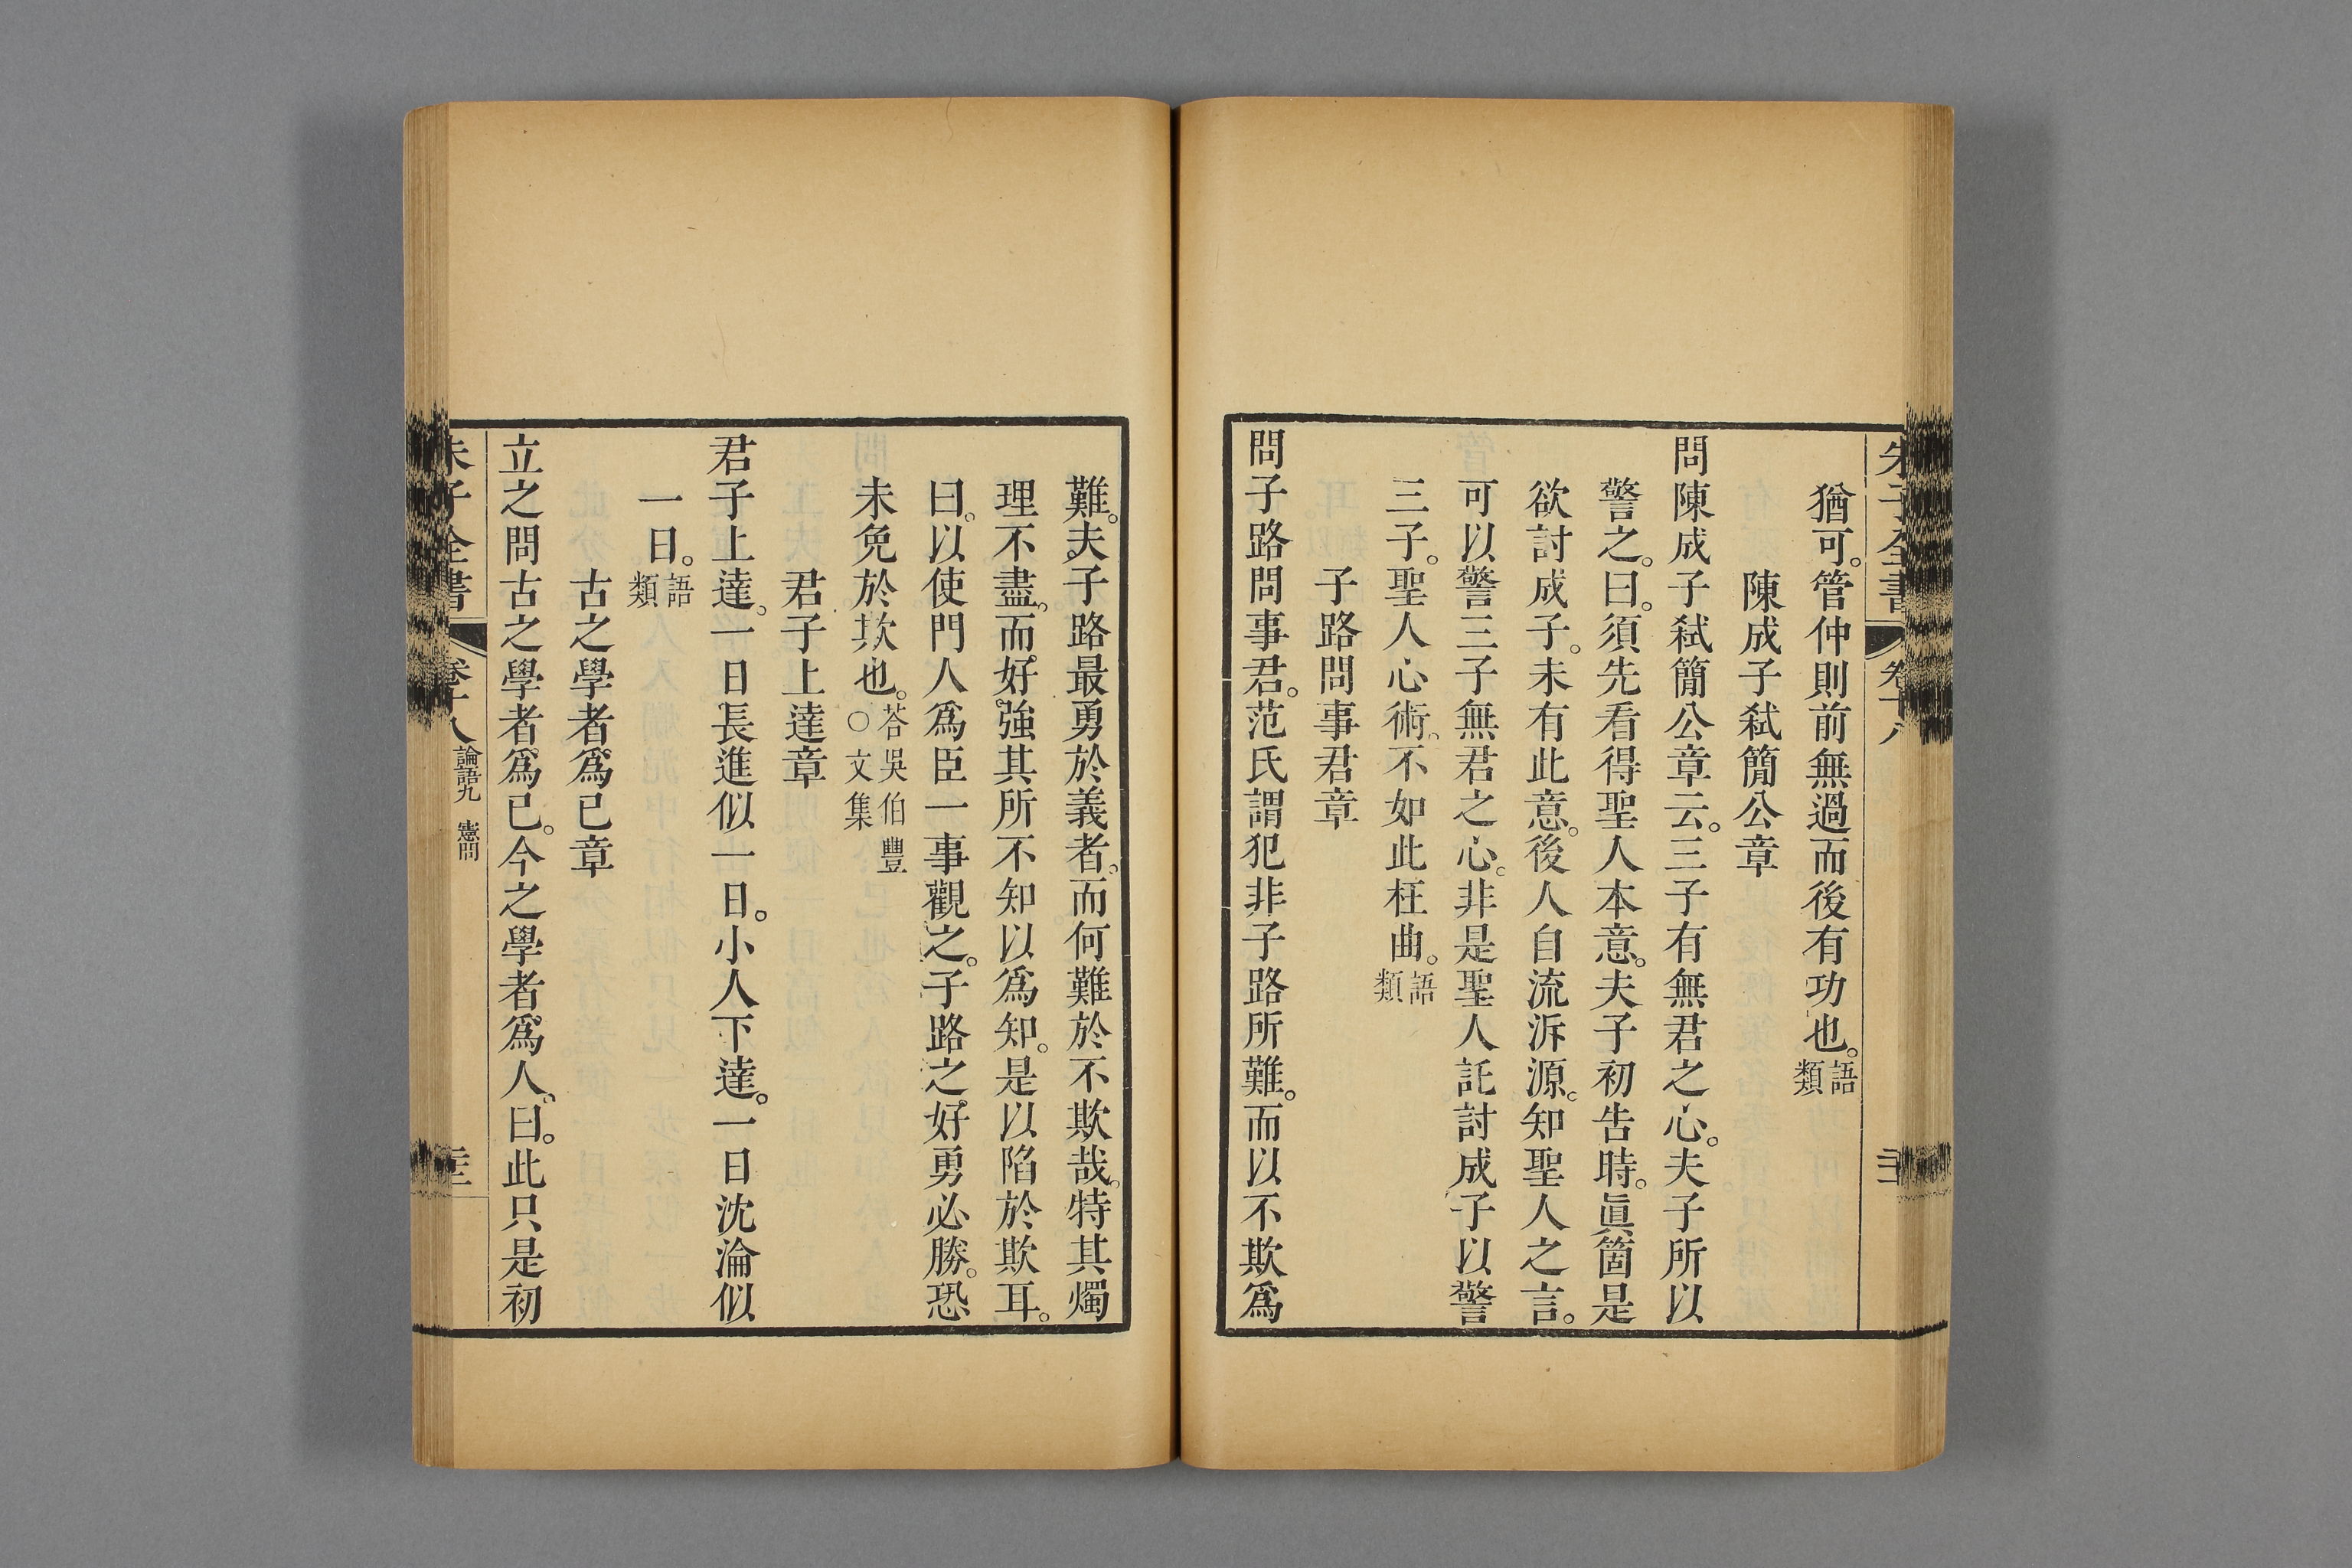 猶可。管仲則前無過而後有功也。語類
陳成子弒簡公章
問陳成子弒簡公章云。三子有無君之心。夫子所以
警之。曰。須先看得聖人本意。夫子初告時。眞箇是
欲討成子。未有此意。後人自流泝源。知聖人之言。
可以警三子無君之心。非是聖人託討成子以警
三子。聖人心術。不如此枉曲。語類
子路問事君章
問子路問事君。范氏謂犯非子路所難。而以不欺爲
難。夫子路最勇於義者。而何難於不欺哉。特其燭
理不盡。而好強其所不知以爲知。是以陷於欺耳。
曰。以使門人爲臣一事觀之。子路之好勇必勝。恐
未免於欺也。荅吳伯豐○文集
君子上達章
君子上達。一日長進似一日。小人下達。一日沈淪似
一日。語類
古之學者爲己章
立之問古之學者爲己。今之學者爲人。曰。此只是初
朱子全書 卷十八 論語九 憲問